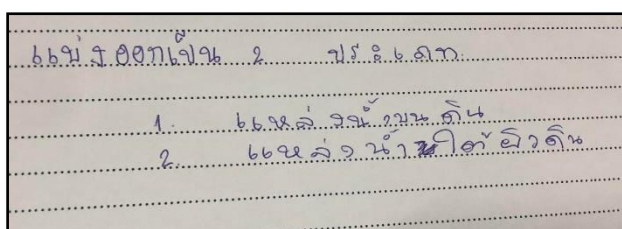 แบ่งออกเป็น 2 ประเภท
1. แหล่งน้ำบนดิน
2. แหล่งน้ำใต้ผิวดิน